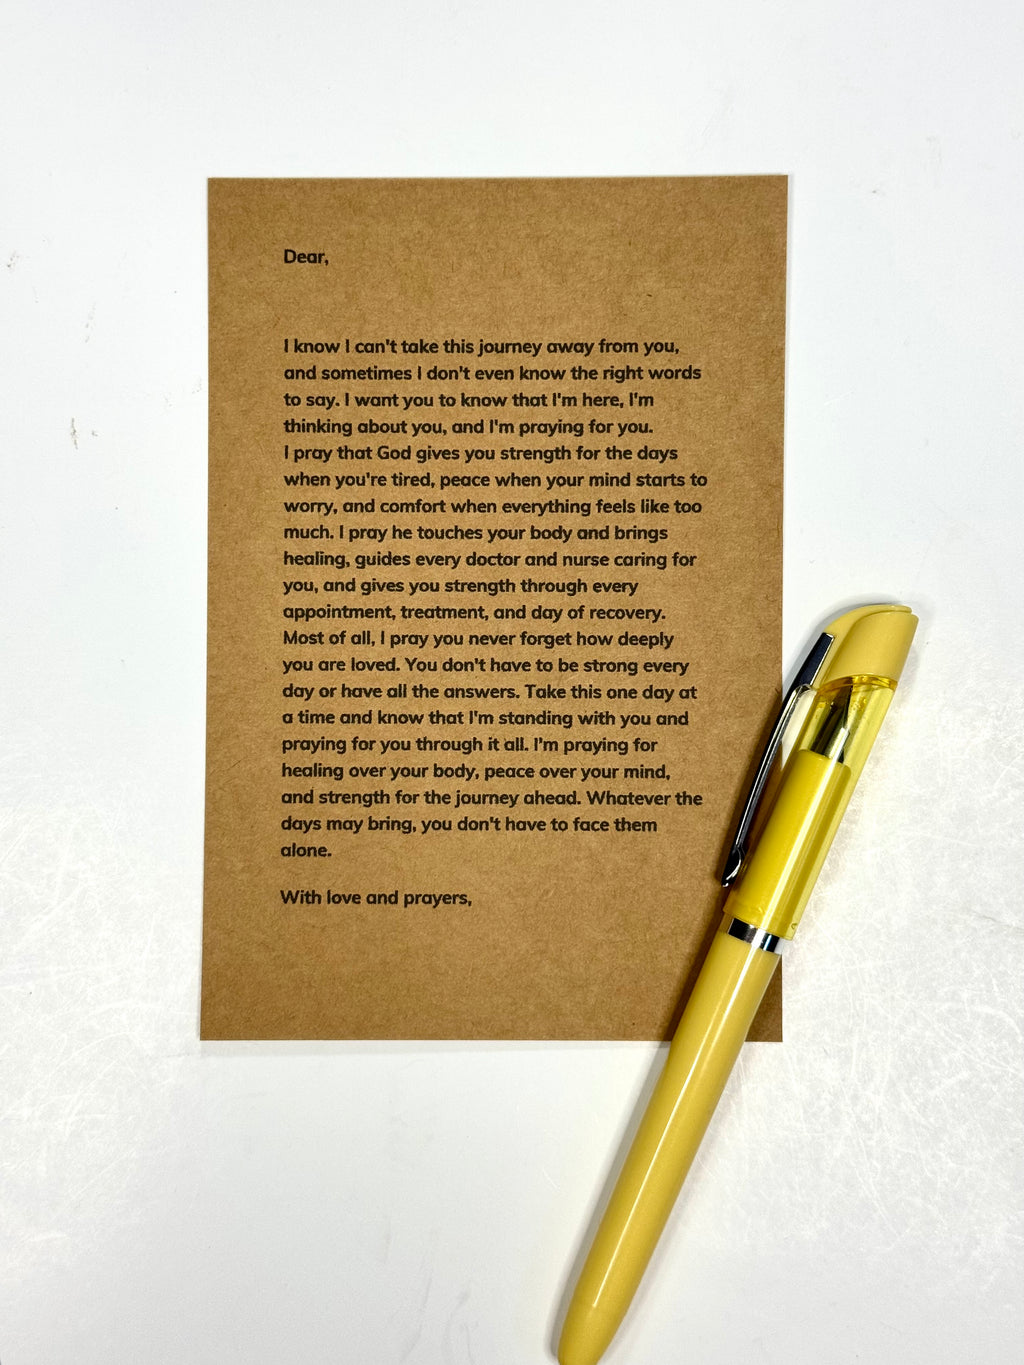 Dear,
I know I can't take this journey away from you,
and sometimes I don't even know the right words
to say. I want you to know that I'm here, I'm
thinking about you, and I'm praying for you.
I pray that God gives you strength for the days
when you're tired, peace when your mind starts to
worry, and comfort when everything feels like too
much. I pray he touches your body and brings
healing, guides every doctor and nurse caring for
you, and gives you strength through every
appointment, treatment, and day of recovery.
Most of all, I pray you never forget how deeply
you are loved. You don't have to be strong every
day or have all the answers. Take this one day at
a time and know that I'm standing with you and
praying for you through it all. I'm praying for
healing over your body, peace over your mind,
and strength for the journey ahead. Whatever the
days may bring, you don't have to face them
alone.
With love and prayers,